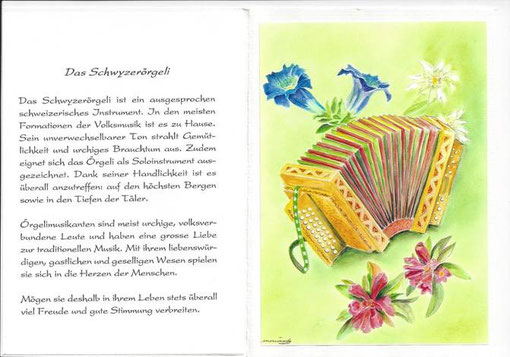 Das Schwyzerörgeli
Das Schwyzerörgeli ist ein ausgesprochen
schweizerisches Instrument. In den meisten
Formationen der Volksmusik ist es zu Hause.
Sein unverwechselbarer Ton strahlt Gemüt-
lichkeit und urchiges Brauchtum aus. Zudem
eignet sich das Örgeli als Soloinstrument aus-
gezeichnet. Dank seiner Handlichkeit ist es
überall anzutreffen: auf den höchsten Bergen
sowie in den Tiefen der Täler.
Örgelimusikanten sind meist urchige, volksver-
bundene Leute und haben eine grosse Liebe
zur traditionellen Musik. Mit ihrem liebenswür-
digen, gastlichen und geselligen Wesen spielen
sie sich in die Herzen der Menschen.
Mögen sie deshalb in ihrem Leben stets überall
viel Freude und gute Stimmung verbreiten.